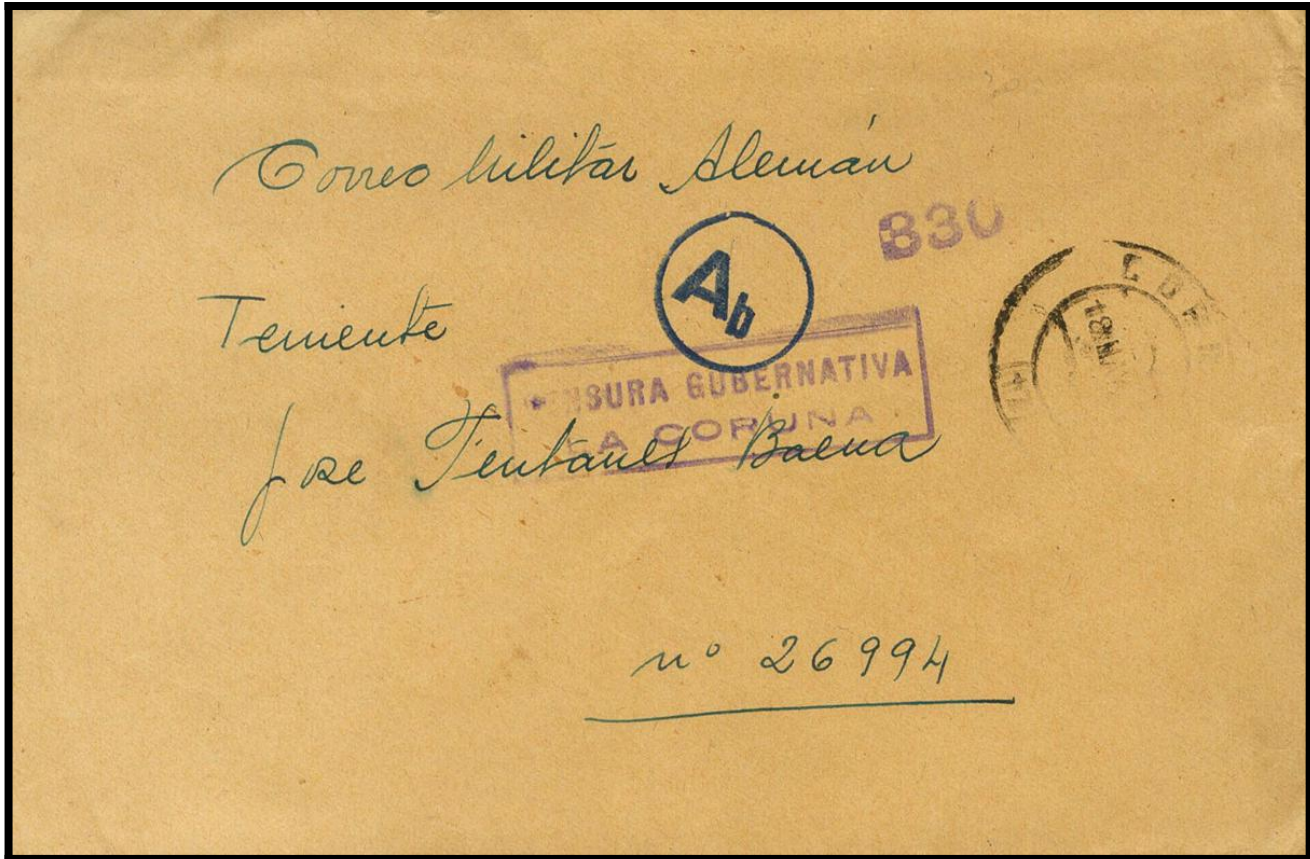 Correo Militár Alemán
830
Ab
Teniente
CENSURA GUBERNATIVA
LA CORUNA
Jose Tentanes Baena
18
nº 26994